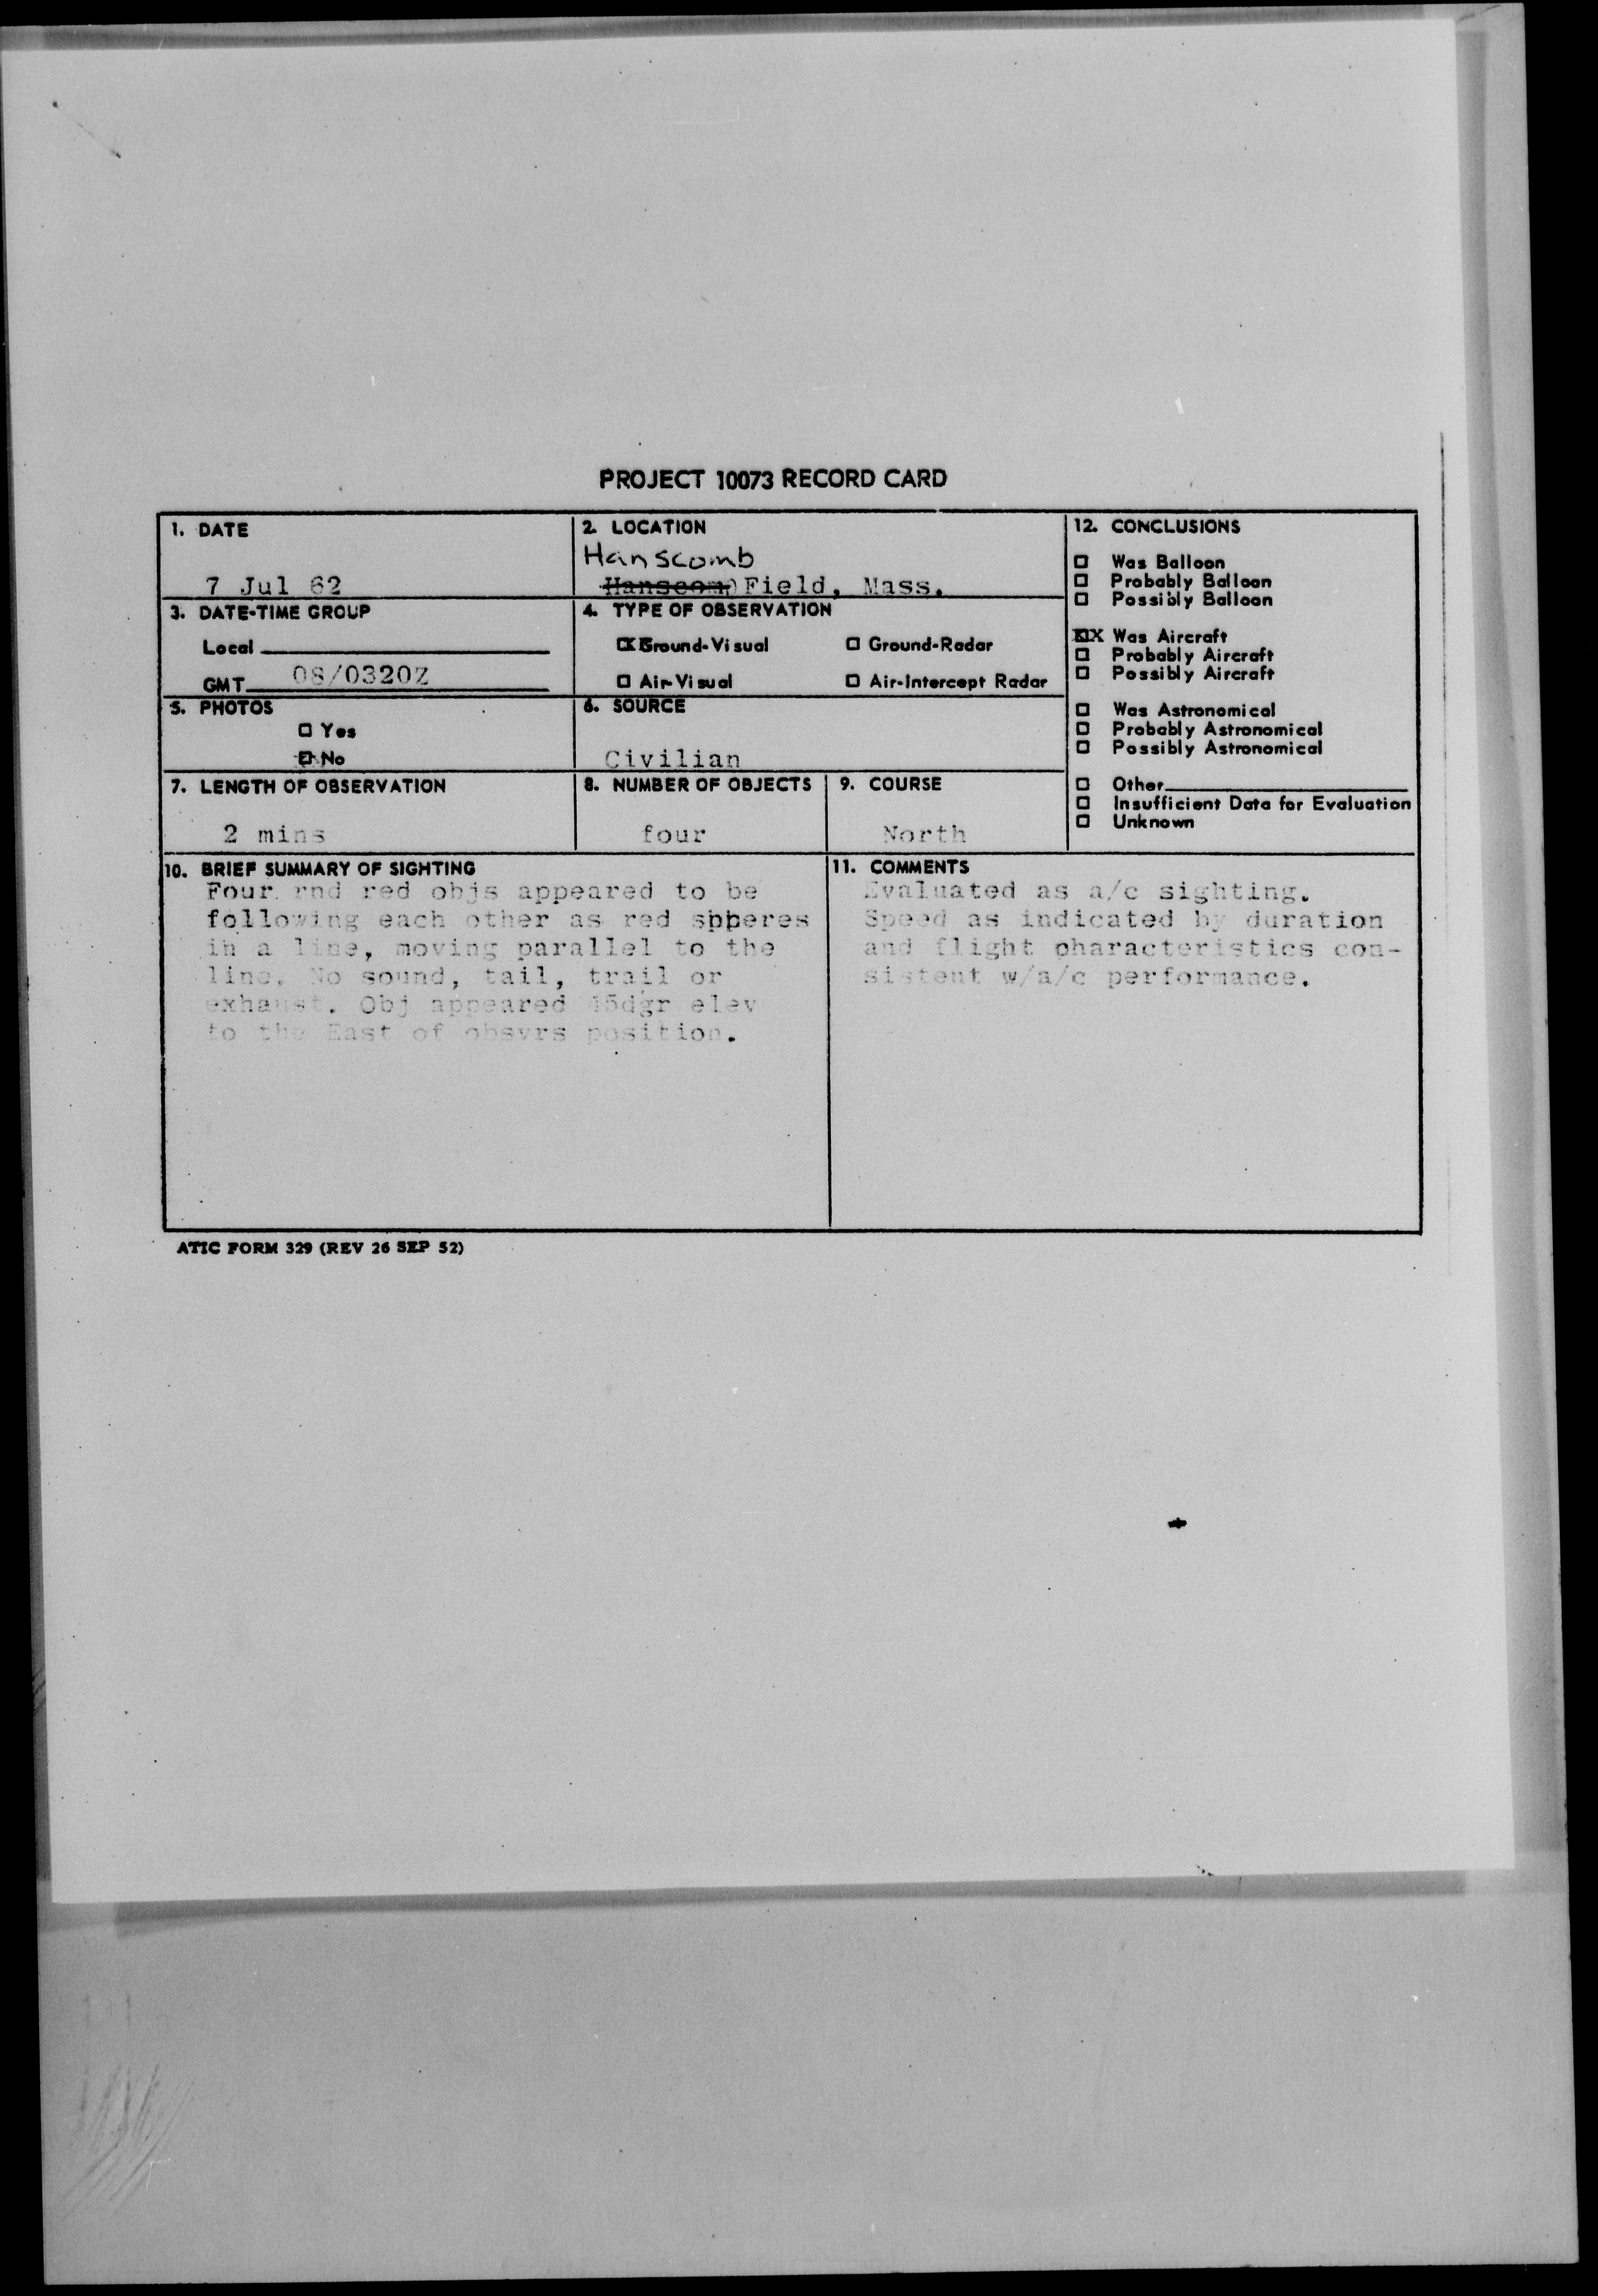 PROJECT 10073 RECORD CARD
1. DATE
7 Jul 62
2. LOCATION
Hanscomb
Hanscom Field, Mass.
12. CONCLUSIONS
☐ Was Balloon
☐ Probably Balloon
☐ Possibly Balloon
XX Was Aircraft
☐ Probably Aircraft
☐ Possibly Aircraft
☐ Was Astronomical
☐ Probably Astronomical
☐ Possibly Astronomical
☐ Other
☐ Insufficient Data for Evaluation
☐ Unknown
3. DATE-TIME GROUP
Local
GMT 08/0320Z
4. TYPE OF OBSERVATION
☒ Ground-Visual ☐ Ground-Radar
☐ Air-Visual ☐ Air-Intercept Radar
5. PHOTOS
☐ Yes
☒ No
6. SOURCE
Civilian
7. LENGTH OF OBSERVATION
2 mins
8. NUMBER OF OBJECTS
four
9. COURSE
North
10. BRIEF SUMMARY OF SIGHTING
Four rnd red objs appeared to be
following each other as red spheres
in a line, moving parallel to the
line. No sound, tail, trail or
exhaust. Obj appeared 45dgr elev
to the East of obsvrs position.
11. COMMENTS
Evaluated as a/c sighting.
Speed as indicated by duration
and flight characteristics con-
sistent w/a/c performance.
ATIC FORM 329 (REV 26 SEP 52)